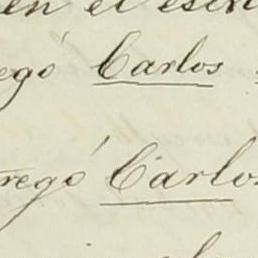 en el
egó Carlos
regó Carlo